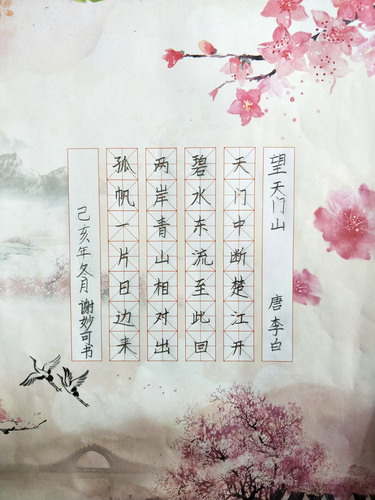 望天门山 唐 李白
天门中断楚江开
碧水东流至此回
两岸青山相对出
孤帆一片日边来
己亥年冬月 谢妙可书